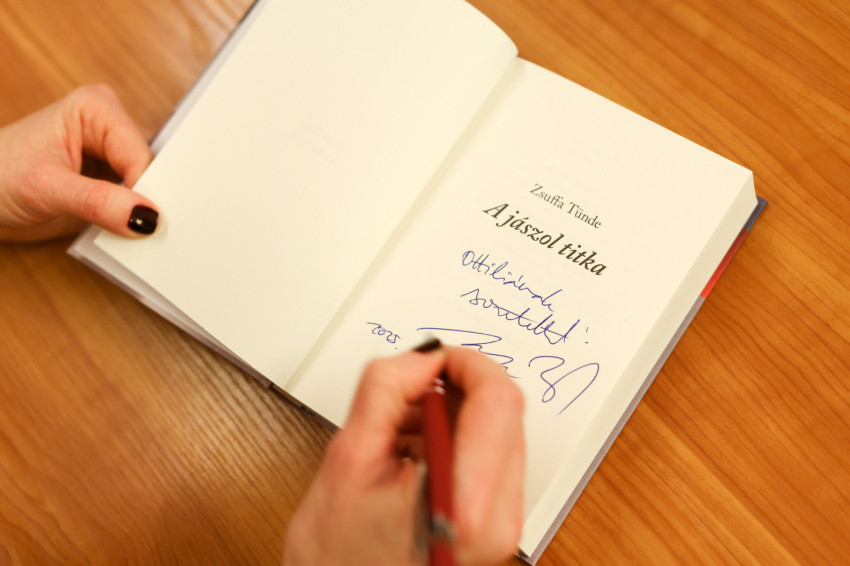 Zsuffa Tünde
A jászol titka
Ottiliának
szeretettel:
2025.